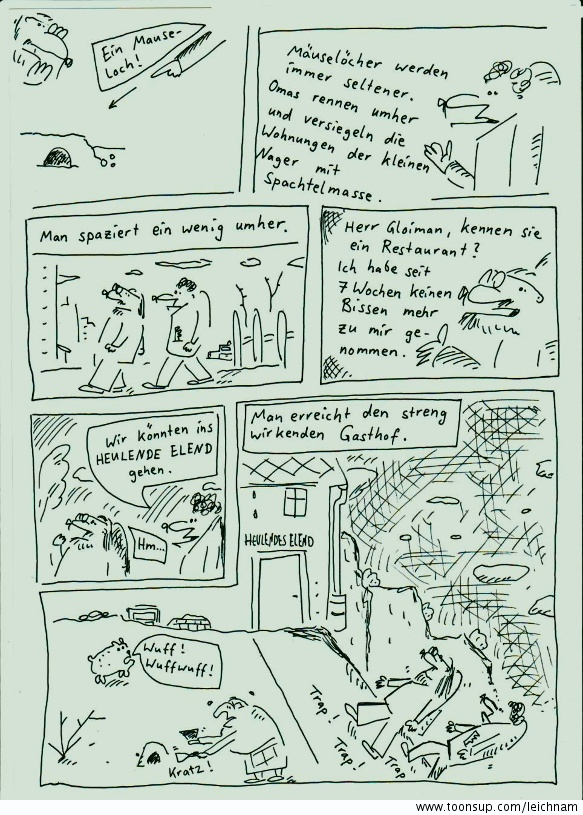 Ein Mause-
Loch!
Mäuselöcher werden
immer seltener.
Omas rennen umher
und versiegeln die
Wohnungen der kleinen
Nager mit
Spachtelmasse.
Man spaziert ein wenig umher.
Herr Gloiman, kennen sie
ein Restaurant?
Ich habe seit
7 Wochen keinen
Bissen mehr
zu mir ge-
nommen.
Wir könnten ins
HEULENDE ELEND
gehen.
Hm...
Man erreicht den streng
wirkenden Gasthof.
HEULENDES ELEND
Wuff!
Wuffwuff!
Kratz!
Trap!
Trap!
Trap
www.toonsup.com/leichnam